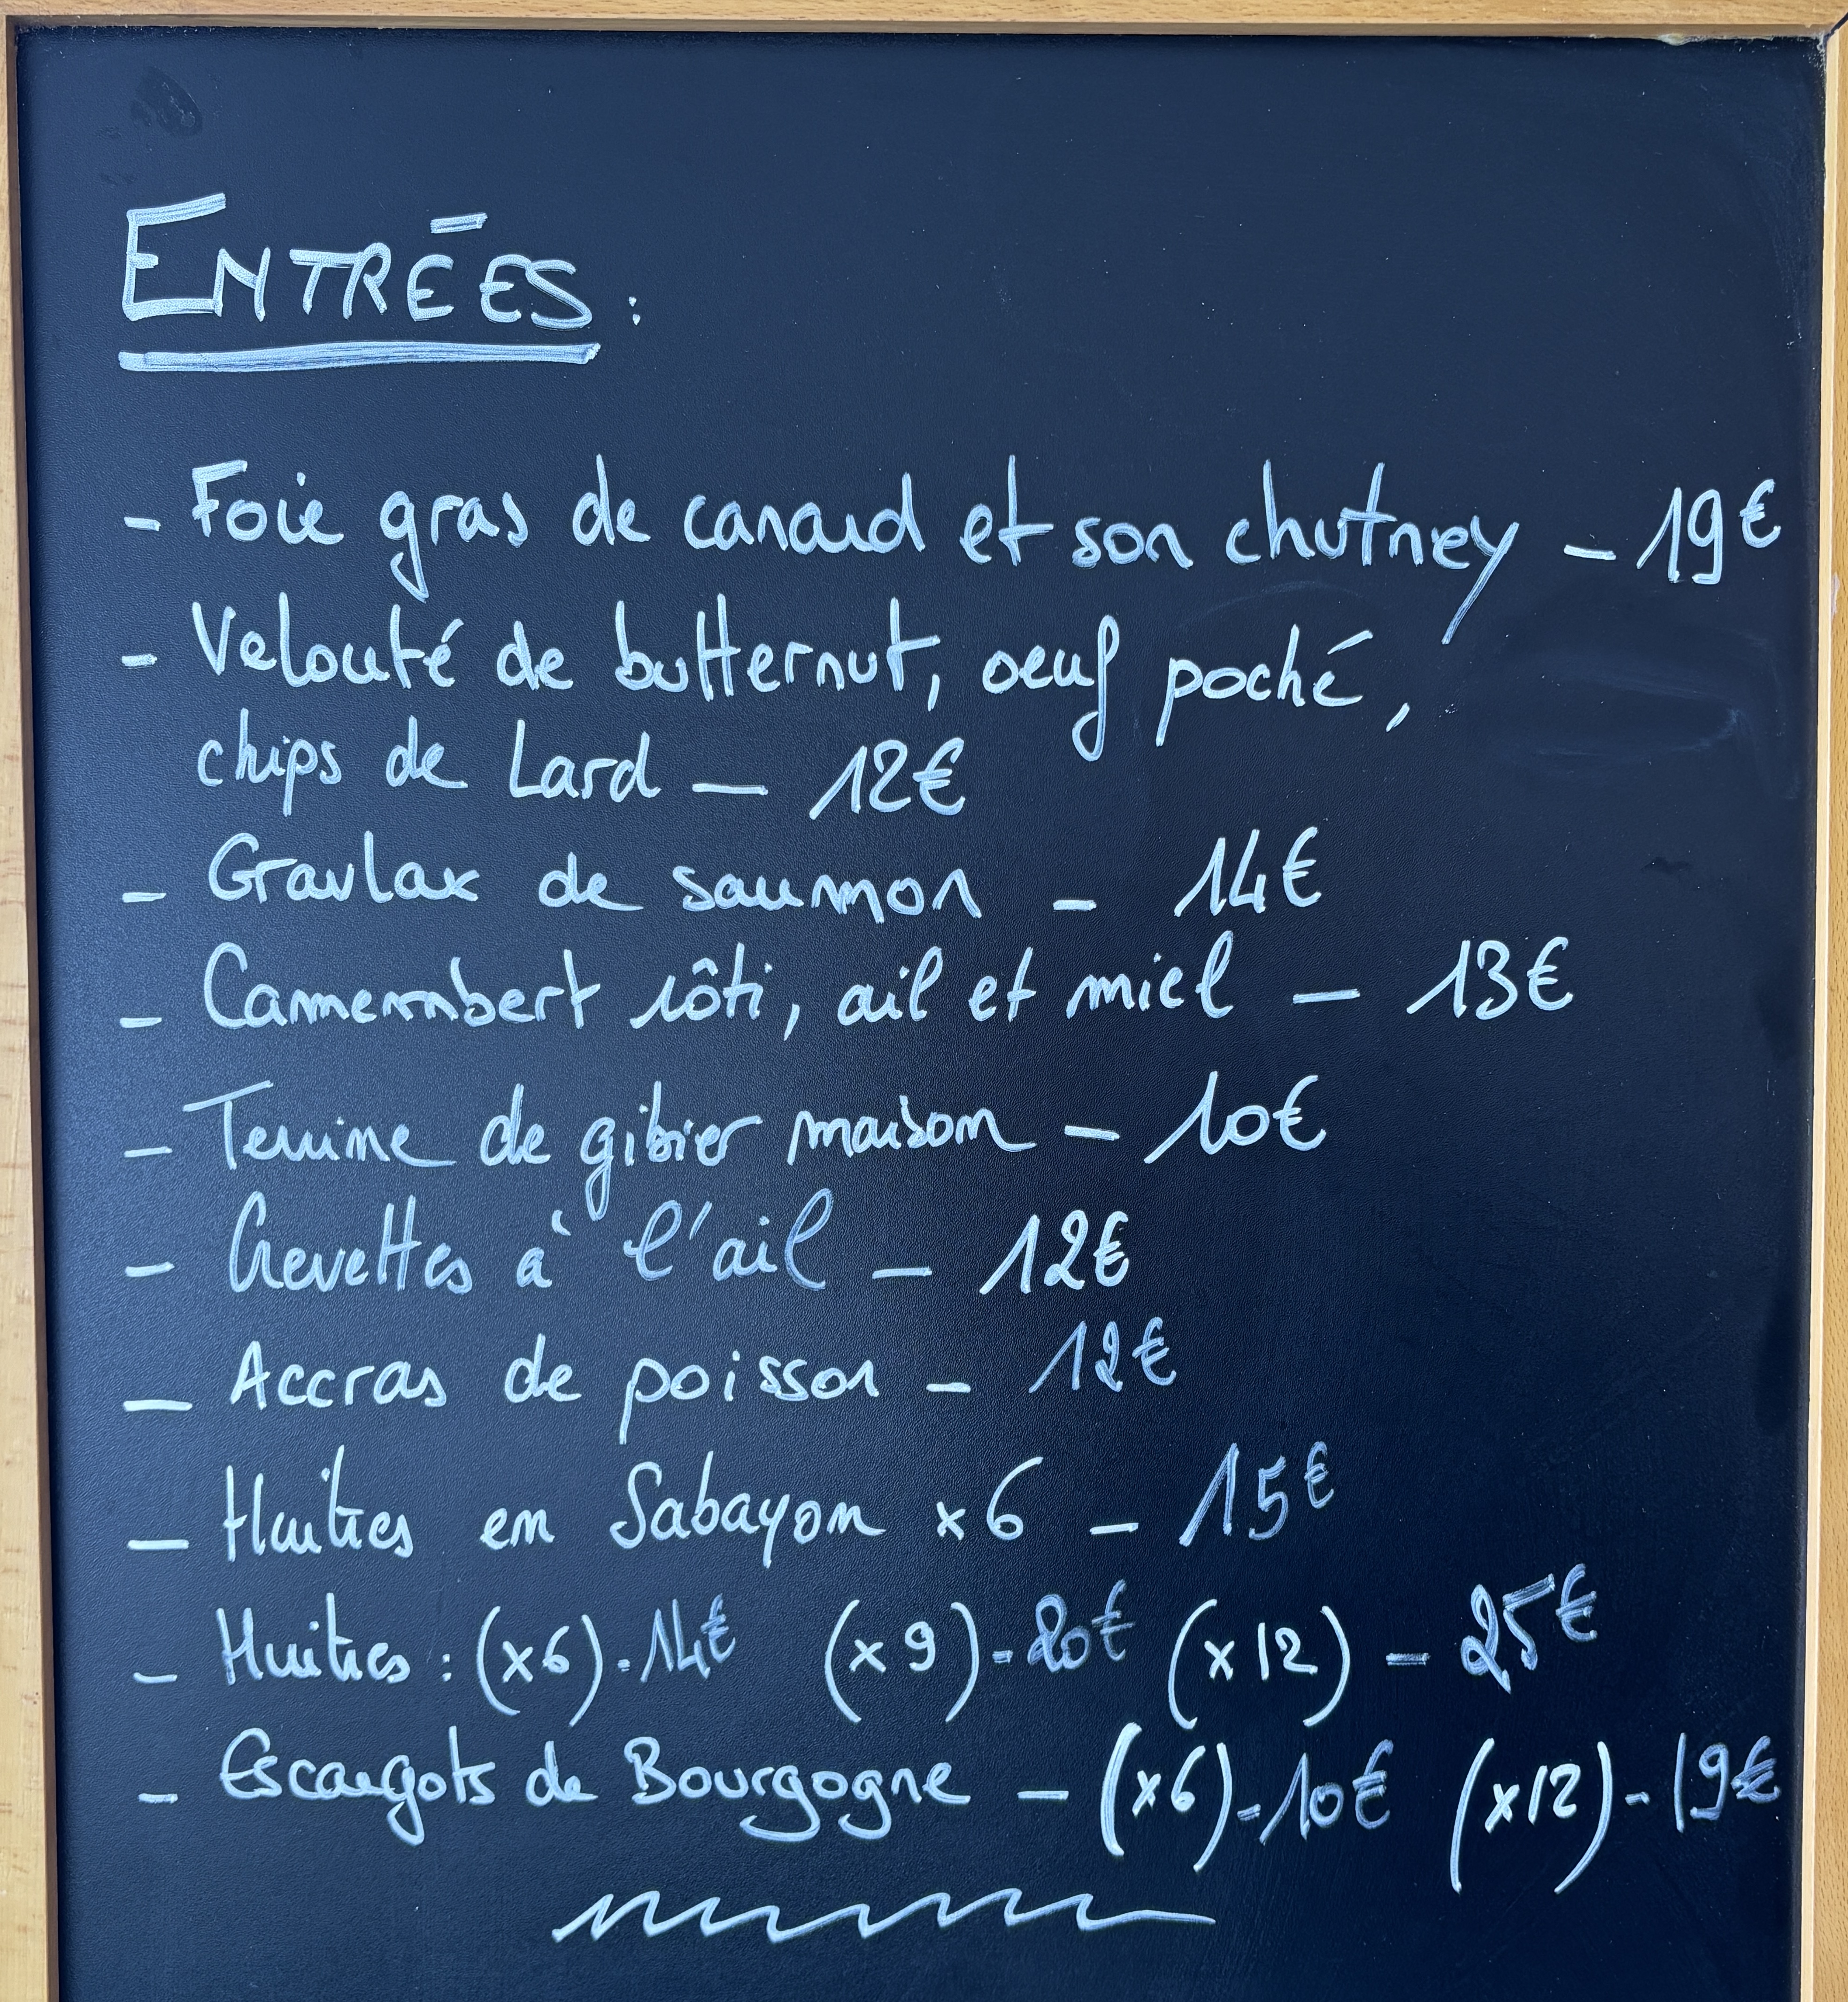 ENTRÉES :
- Foie gras de canard et son chutney - 19€
- Velouté de butternut, oeuf poché,
chips de Lard - 12€
- Gravlax de saumon - 14€
- Camembert rôti, ail et miel - 13€
- Terrine de gibier maison - 10€
- Crevettes à l'ail - 12€
- Accras de poisson - 12€
- Huitres en Sabayon x6 - 15€
- Huitres : (x6) - 14€ (x9) - 20€ (x12) - 25€
- Escargots de Bourgogne - (x6) - 10€ (x12) - 19€